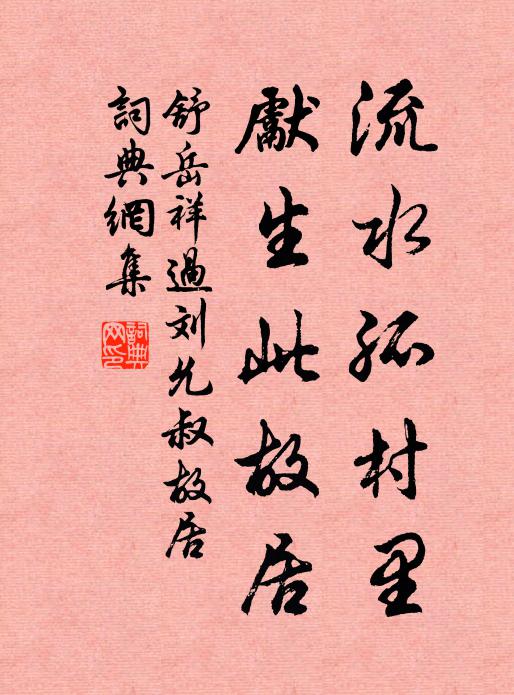 流水孤村里
獻生此故居
舒岳祥過刘允叔故居
詞典網集
詞典網印